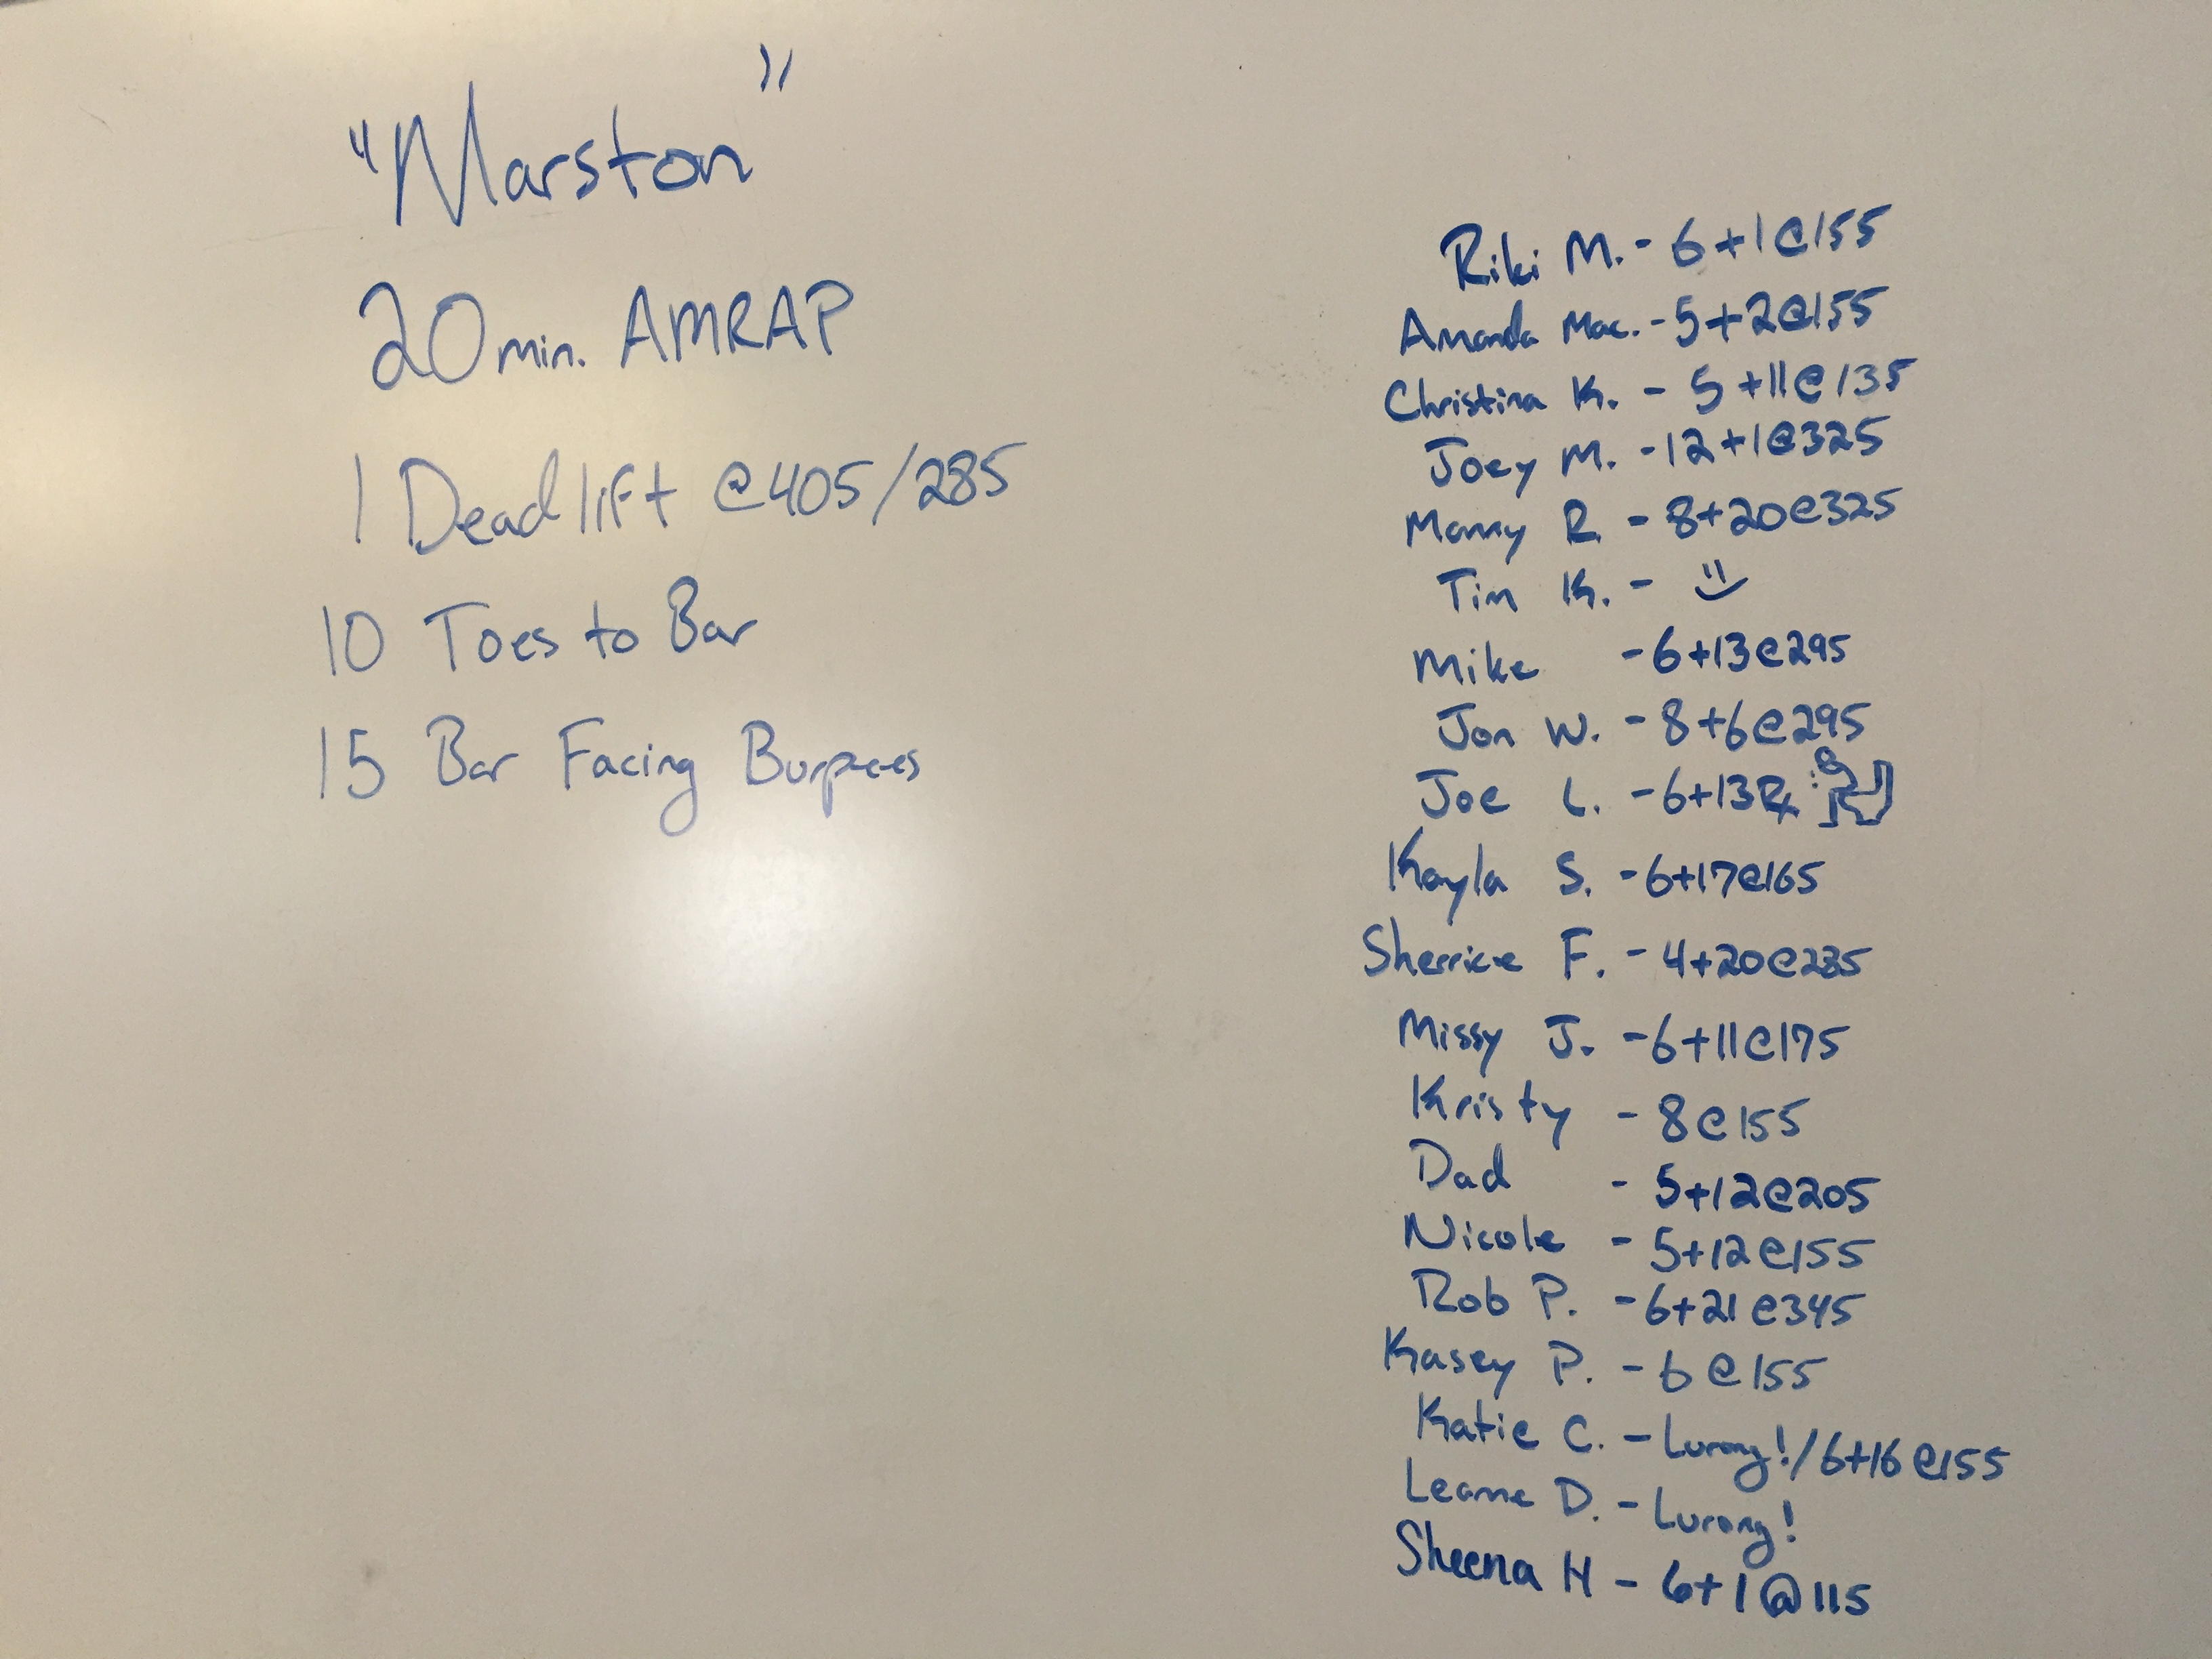 "Marston"
20 min. AMRAP
1 Deadlift @405/285
10 Toes to Bar
15 Bar Facing Burpees
Riki M. - 6+1@155
Amanda Mac. - 5+2@155
Christina K. - 5+11@135
Joey M. - 12+1@325
Manny R. - 8+20@325
Tim K. -
Mike - 6+13@295
Jon W. - 8+6@295
Joe L. - 6+13Rx
Kayla S. - 6+17@165
Sherrice F. - 4+20@235
Missy J. - 6+11@175
Kristy - 8@155
Dad - 5+12@205
Nicole - 5+12@155
Rob P. - 6+21@345
Kasey P. - 6@155
Katie C. - Lurong!/6+16@155
Leanne D. - Lurong!
Sheena H - 6+1@115